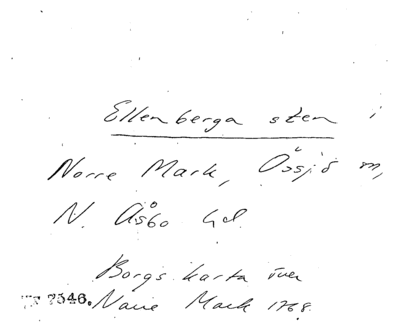 Ellenberga sten i
Norre Mark, Össjö sn,
N. Åsbo hd.
Borgs karta över
7546. Norre Mark 1768.